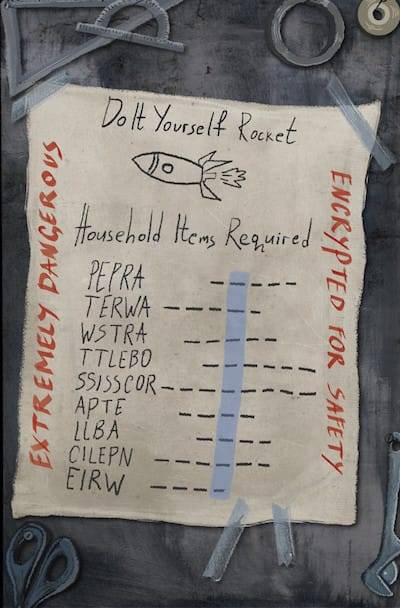 Do It Yourself Rocket
EXTREMELY DANGEROUS
ENCRYPTED FOR SAFETY
Household Items Required
PEPRA
TERWA
WSTRA
TTLEBO
SSISSCOR
APTE
LLBA
CILEPN
EIRW